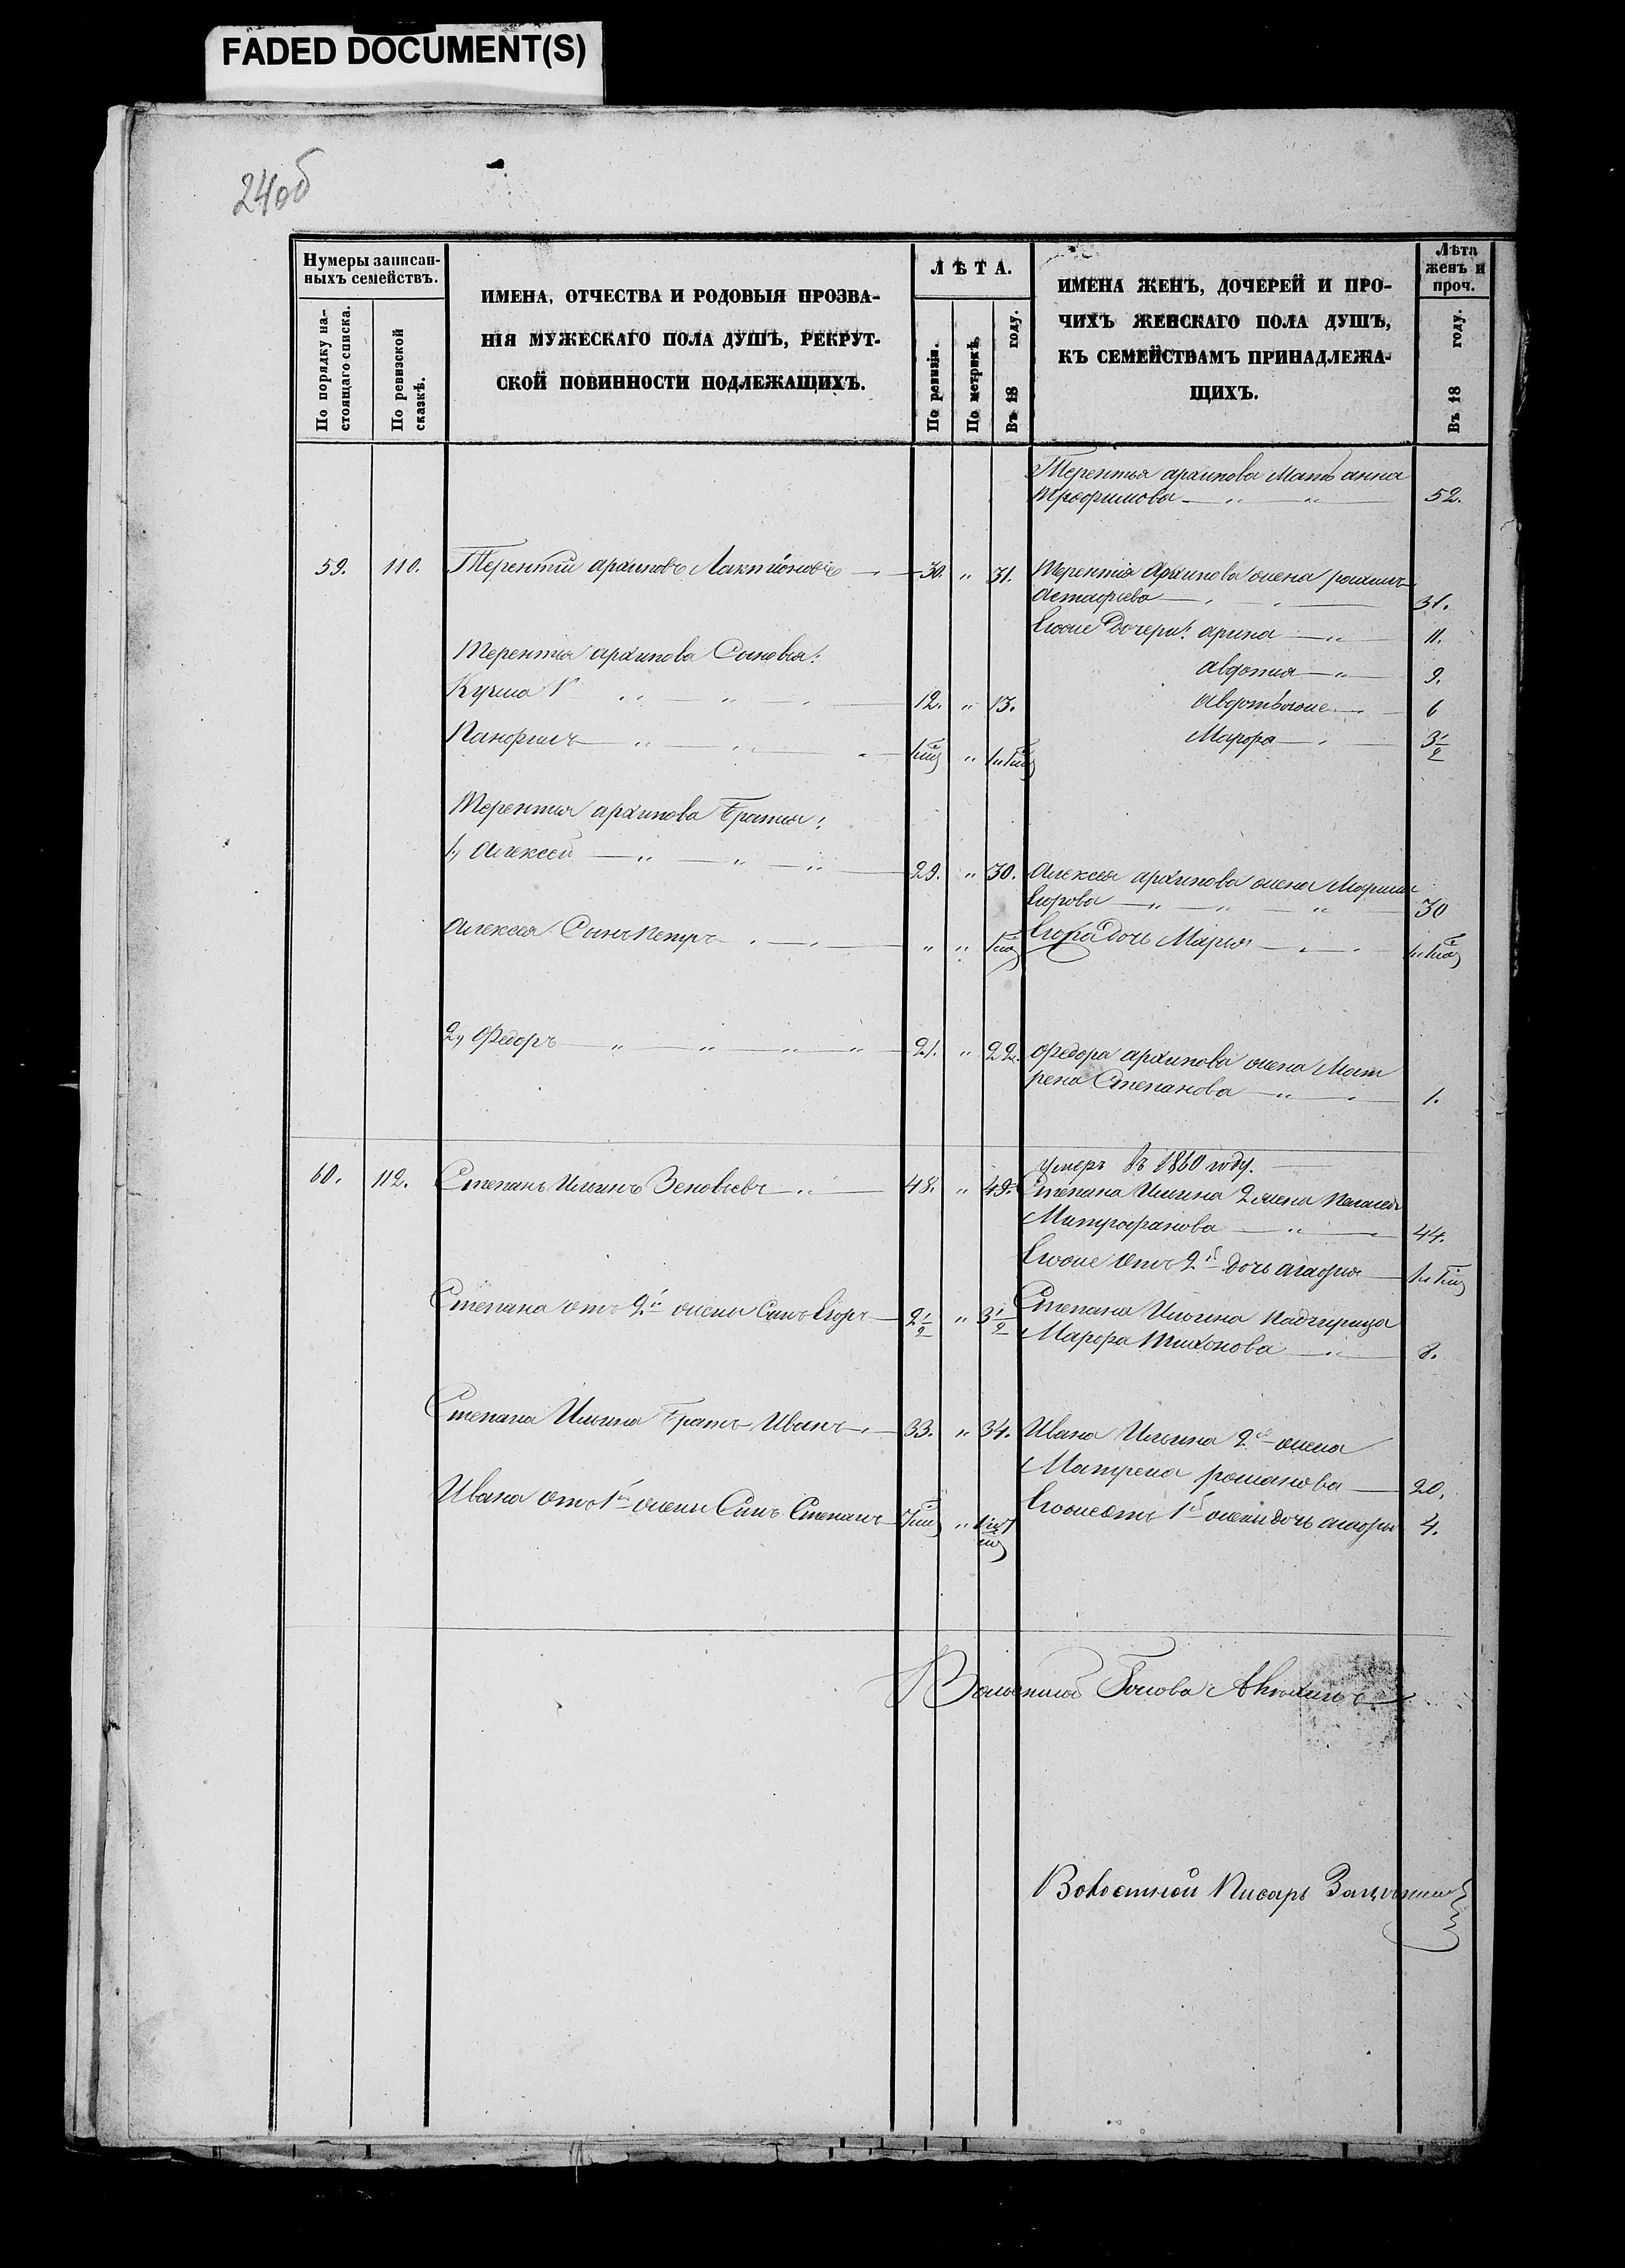 FADED DOCUMENT(S)
24об
Нумеры записан-
ныхъ семействъ.
По порядку на-
стоящаго списка.
По ревизской
сказкѣ.
ИМЕНА, ОТЧЕСТВА И РОДОВЫЯ ПРОЗВА-
НІЯ МУЖЕСКАГО ПОЛА ДУШЪ, РЕКРУТ-
СКОЙ ПОВИННОСТИ ПОДЛЕЖАЩИХЪ.
ЛѢТА.
По ревизіи.
По метрикѣ.
Въ 18 году.
ИМЕНА ЖЕНЪ, ДОЧЕРЕЙ И ПРО-
ЧИХЪ ЖЕНСКАГО ПОЛА ДУШЪ,
КЪ СЕМЕЙСТВАМЪ ПРИНАДЛЕЖА-
ЩИХЪ.
Лѣта
женъ и
проч.
Въ 18 году.
Терентья архипова Мать анна
Трофимова 52.
59. 110. Терентій архиповъ Лактіоновъ 30. " 31. Терентія Архипова жена
Астафьева 31.
Егоже Дочери: арина 11.
Терентія архипова Сыновья:
авдотия 9.
Кузма 12. " 13.
6
Панфилъ
Марфа 3 1/2
Терентия архипова Братья:
1, Алексей 29. " 30. Алексея архипова жена
Егорова 30
Алексея Сынъ Петръ " "
Егова дочь Марья
2, Федоръ 21. " 22. Федора архипова жена Мат
рена Степанова 1.
умеръ въ 1860 году.
60. 112. Степанъ Ильинъ Зеновьевъ 48. " 49. Степана Ильина 2 жена Пелагея
Митрофанова 44.
Егоже отъ 2й дочь агафия
Степана отъ 2й жены Сынъ Егоръ 2 1/2 " 3 1/2 Степана Ильина Падчирица
Марфа Тихонова 8.
Степана Ильина Братъ Иванъ 33. " 34. Ивана Ильина 2я жена
Матрена романова 20.
Ивана отъ 1й жены Сынъ Степанъ
Егоже отъ 1й жены дочь агафья 4.
Волостной Голова
Волостной Писарь